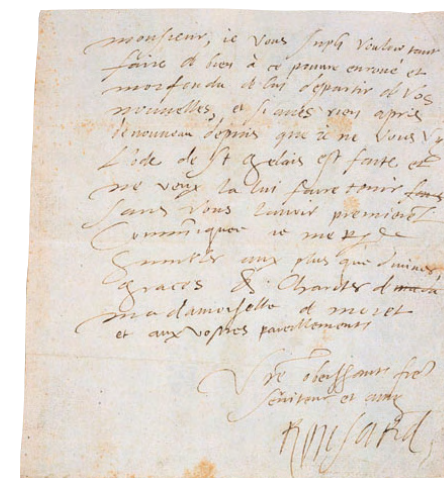 monsieur, ie vous supli vouloir tant
faire de bien à ce pauvre enroué et
morfondu de lui departir de vos
nouvelles, et si avés rien apris
de nouveau depuis que ie ne vous vy
L'ode de St gelais est faite et
ne veux la lui faire tenir
sans vous l'avoir premieremt
Communiquee ie me
humble aux plus que divines
graces & Charites de
madamoiselle de morel
et aux vostres pareillement
Vre obeissant frere
serviteur et amy
Ronsard